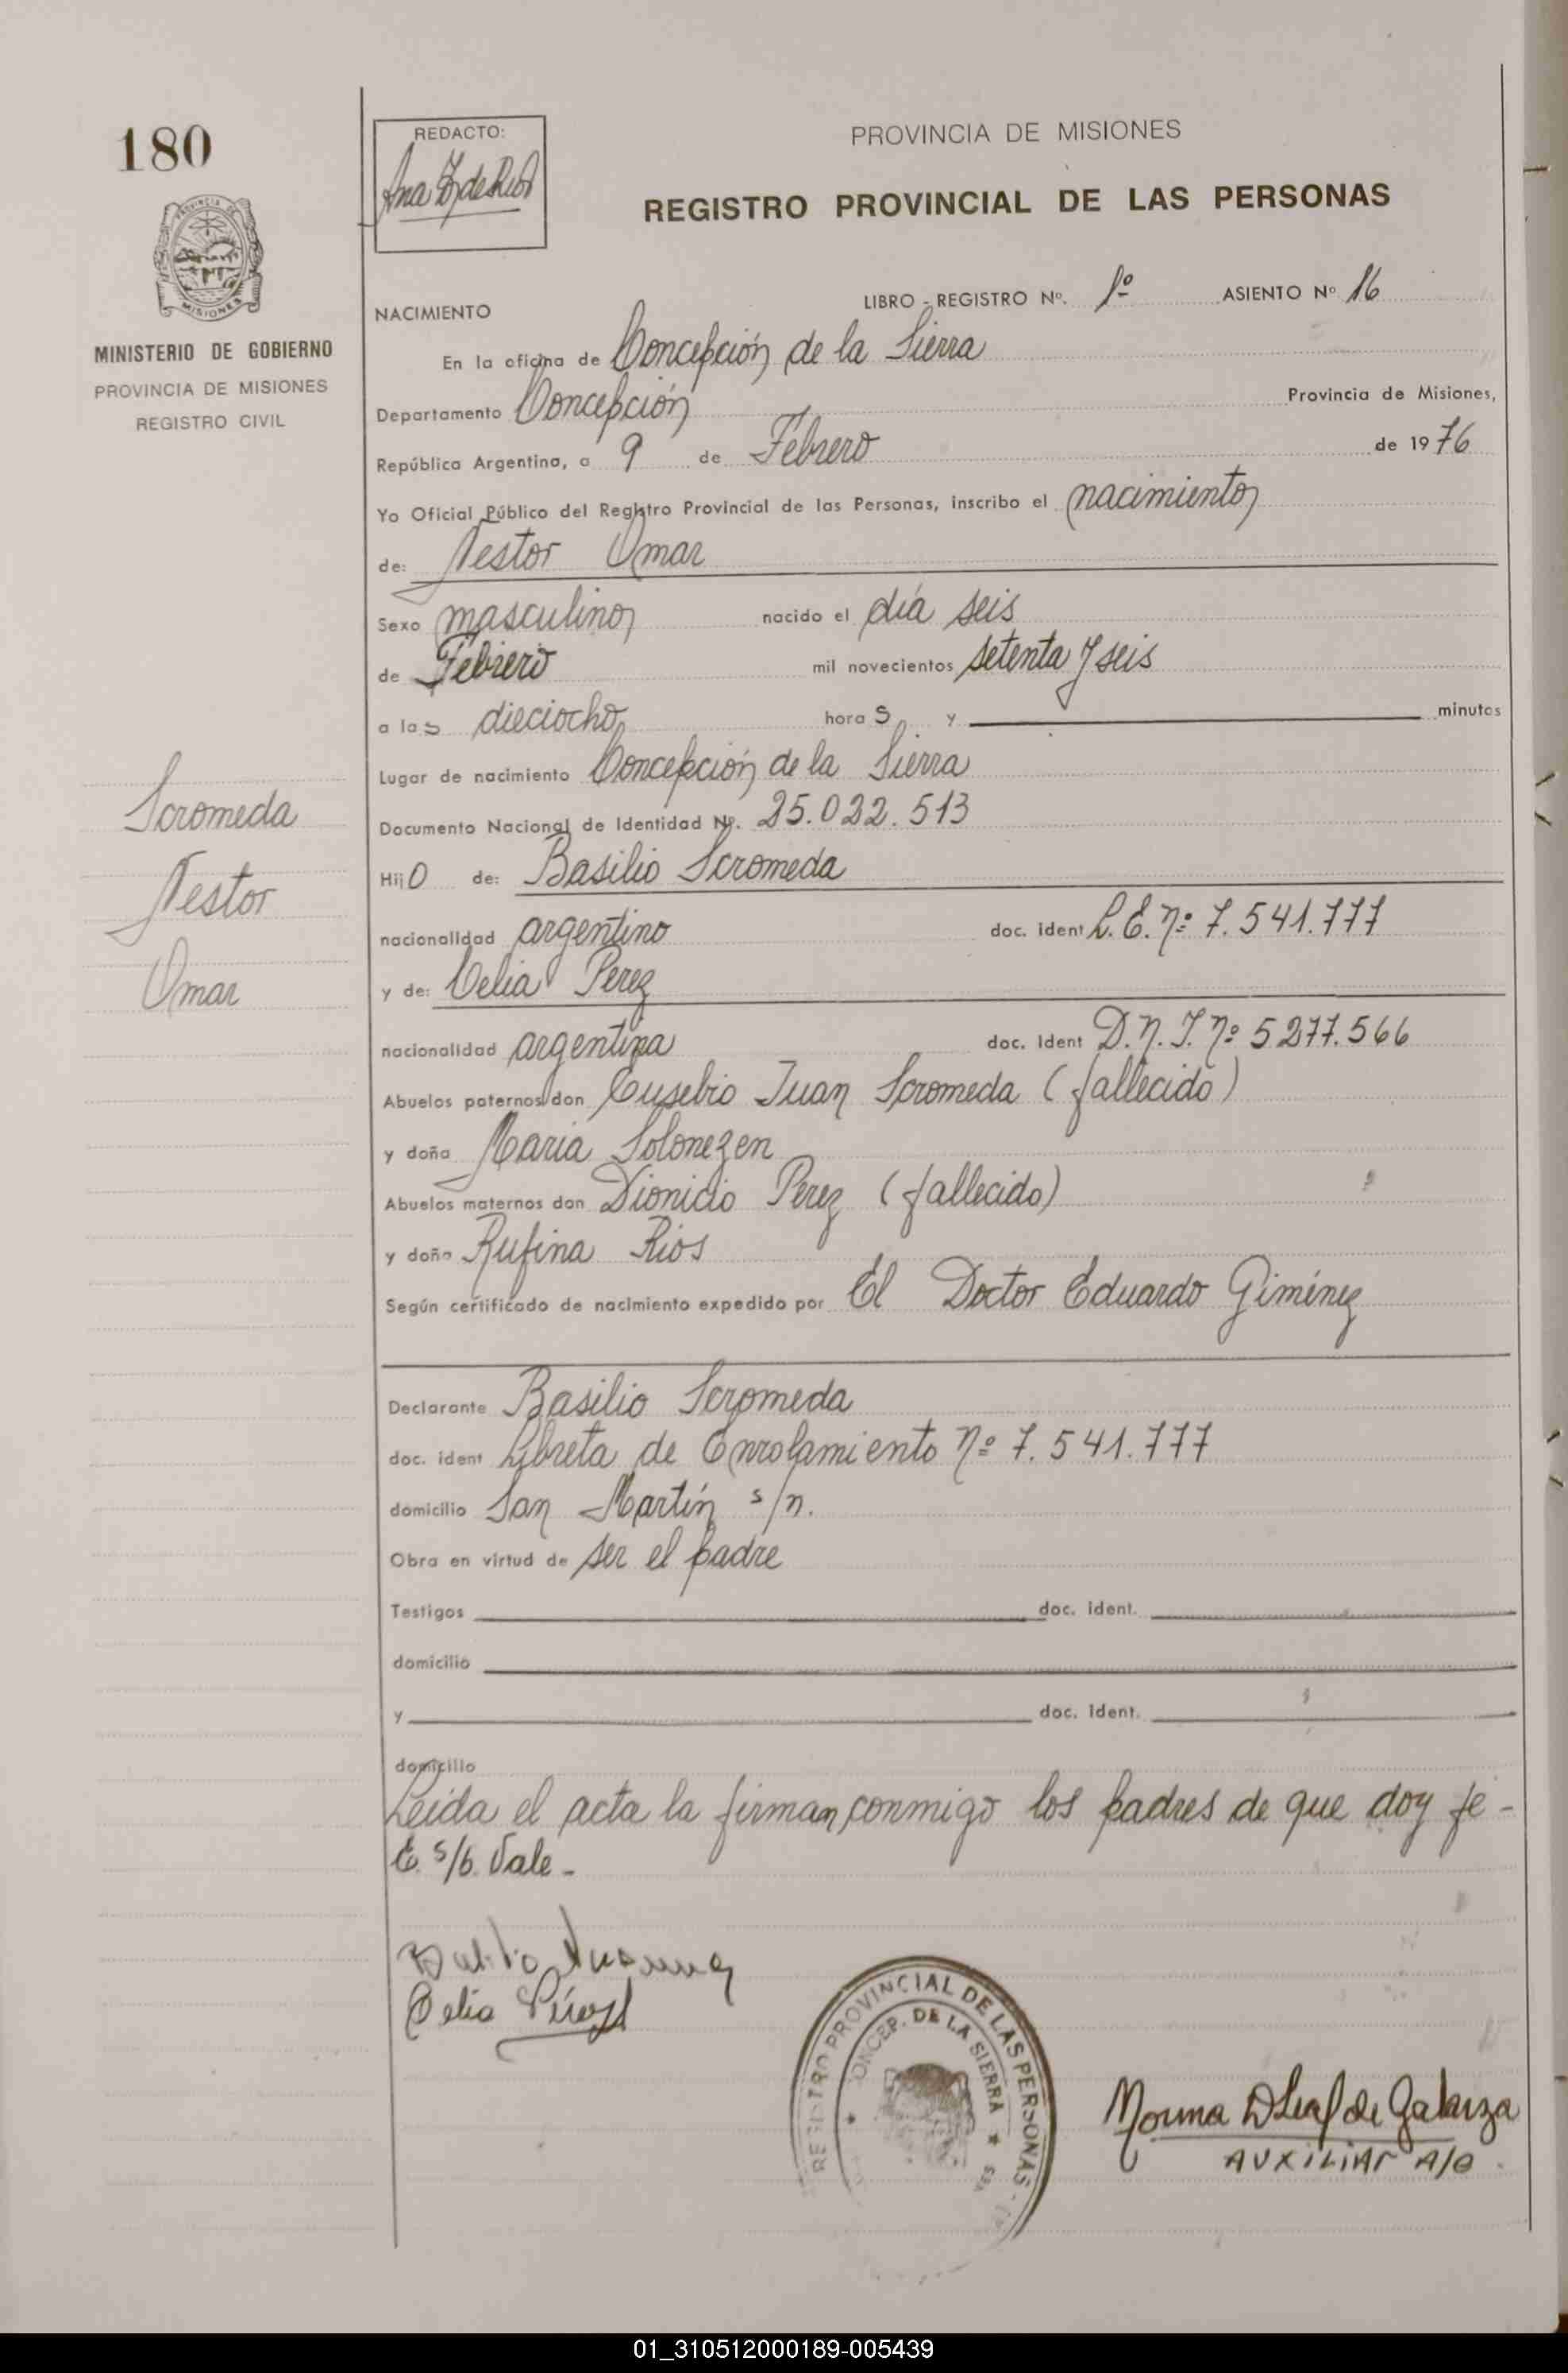 180
REDACTO:
PROVINCIA DE MISIONES
REGISTRO PROVINCIAL DE LAS PERSONAS
PROVINCIA DE MISIONES
MINISTERIO DE GOBIERNO
PROVINCIA DE MISIONES
REGISTRO CIVIL
NACIMIENTO
LIBRO - REGISTRO Nº. 1º ASIENTO Nº 16
En la oficina de Concepción de la Sierra
Departamento Concepción Provincia de Misiones,
República Argentina, a 9 de Febrero de 1976
Yo Oficial Público del Registro Provincial de las Personas, inscribo el nacimiento
de: Nestor Omar
Sexo masculino nacido el día seis
de Febrero mil novecientos setenta y seis
a las dieciocho horas y minutos
Lugar de nacimiento Concepción de la Sierra
Documento Nacional de Identidad Nº. 25.022.513
Hijo de: Basilio Scromeda
nacionalidad argentino doc. ident L.E. nº 7.541.777
y de: Celia Perez
nacionalidad argentina doc. Ident D.N.I. nº 5277.566
Abuelos paternos don Eusebio Juan Scromeda (fallecido)
y doña Maria Solonezen
Abuelos maternos don Dionicio Perez (fallecido)
y doña Rufina Rios
Según certificado de nacimiento expedido por El Doctor Eduardo Giménez
Declarante Basilio Scromeda
doc. ident Libreta de Enrolamiento nº 7.541.777
domicilio San Martín s/n.
Obra en virtud de ser el padre
Testigos doc. ident.
domicilio
y doc. ident.
domicilio
Leida el acta la firman conmigo los padres de que doy fe -
E. s/b. Vale -
Scromeda
Nestor
Omar
Celia Pérez
REGISTRO PROVINCIAL DE LAS PERSONAS
CONCEP. DE LA SIERRA
Norma D Leal de Galarza
AUXILIAR A/O.
01_310512000189-005439